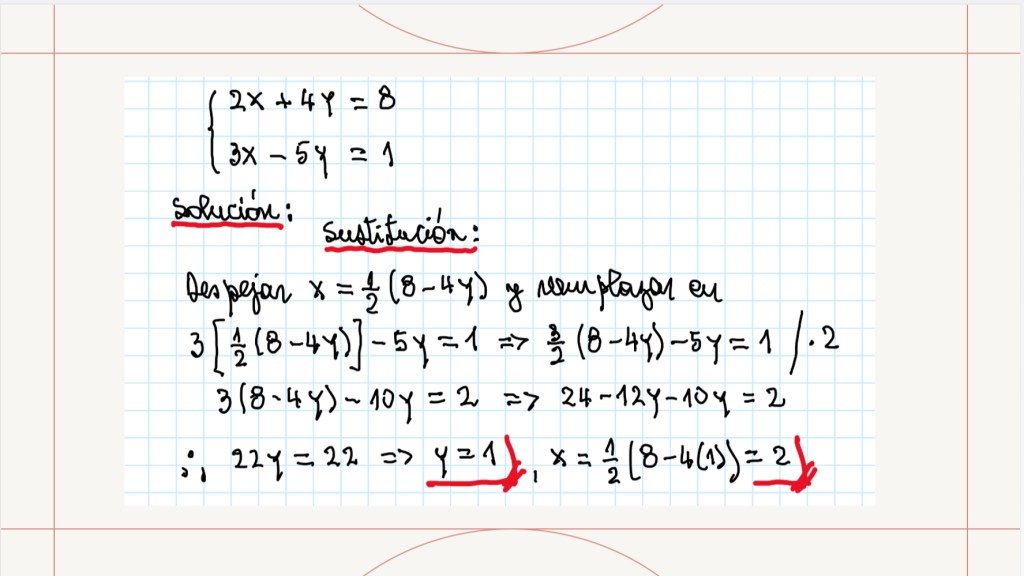 2x + 4y = 8
3x - 5y = 1
Solución:
Sustitución:
Despejar x = 1/2 (8-4y) y reemplazar en
3[1/2 (8-4y)] - 5y = 1 => 3/2 (8-4y) - 5y = 1 /·2
3(8-4y) - 10y = 2 => 24 - 12y - 10y = 2
∴, 22y = 22 => y = 1, x = 1/2 (8-4(1)) = 2